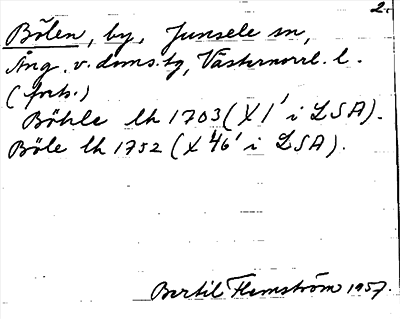 2.
Bölen, by, Junsele sn,
Ång. v. doms.tg, Västernorrl. l.
(forts.)
Böhle lk 1703 (X 1' i LSA).
Böle lk 1752 (X 46' i LSA).
Bertil Flemström 1957.